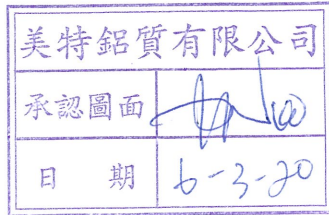 美特鋁質有限公司
承認圖面
日 期 6-3-20